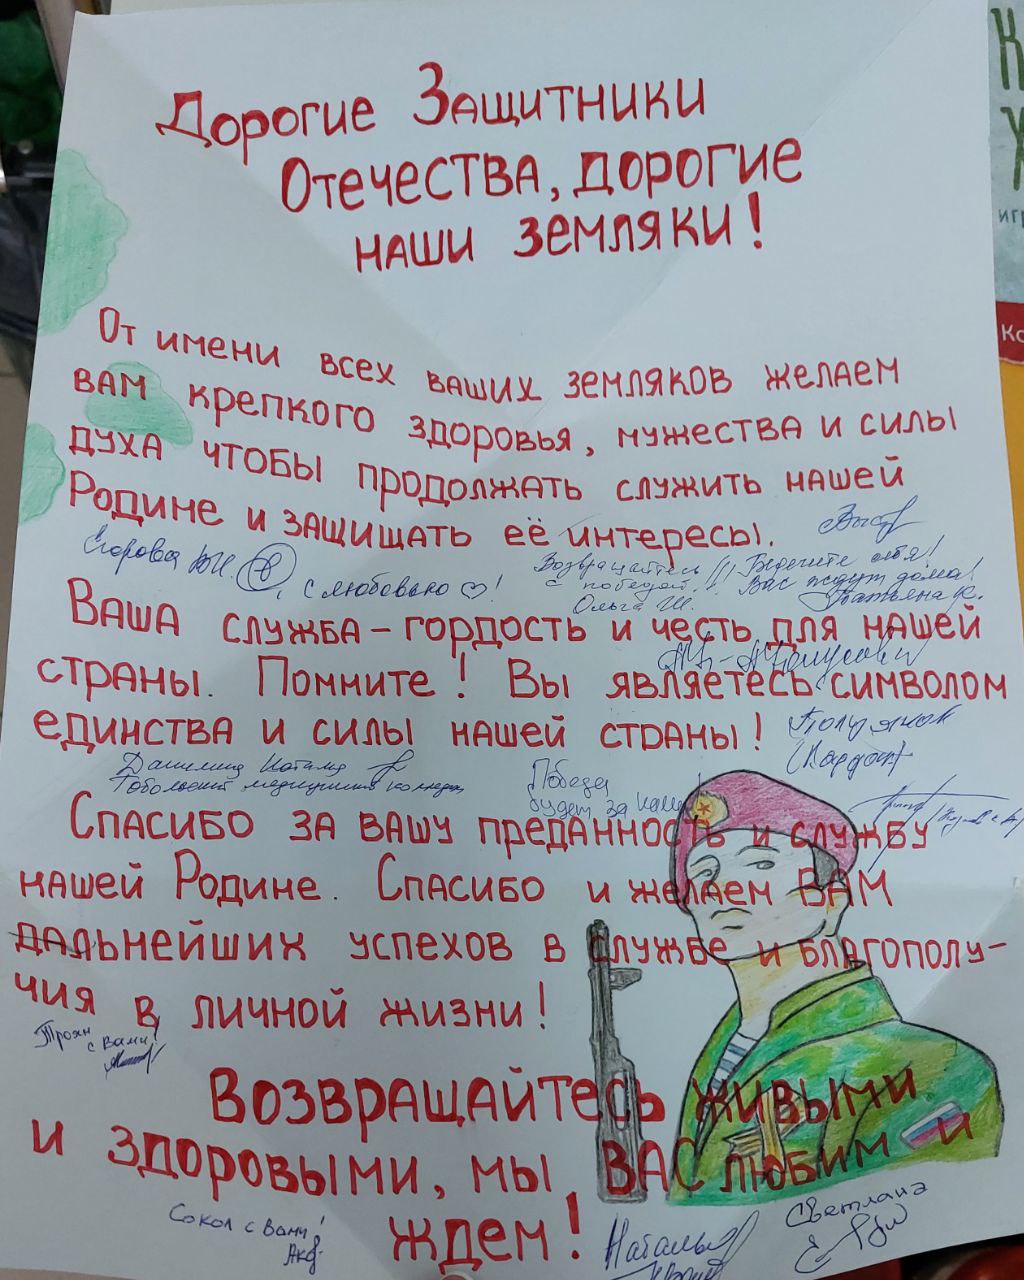 Дорогие Защитники
Отечества, дорогие
наши земляки!
От имени всех ваших земляков желаем
вам крепкого здоровья, мужества и силы
духа чтобы продолжать служить нашей
Родине и защищать её интересы.
Егорова
с любовью ♡!
Возвращайтесь
с победой!!!
Ольга Ш.
Берегите себя!
Вас ждут дома!
Татьяна К.
Ваша служба – гордость и честь для нашей
страны. Помните! Вы являетесь символом
единства и силы нашей страны!
Тобольский медицинский колледж
Победа
будет за нами
Спасибо за вашу преданность и службу
нашей Родине. Спасибо и желаем ВАМ
дальнейших успехов в службе и благополу-
чия в личной жизни!
Троян
с Вами!
Возвращайтесь живыми
и здоровыми, мы ВАС любим и
ждем!
Сокол с Вами!
Наталья
Светлана
К
иг
Ко